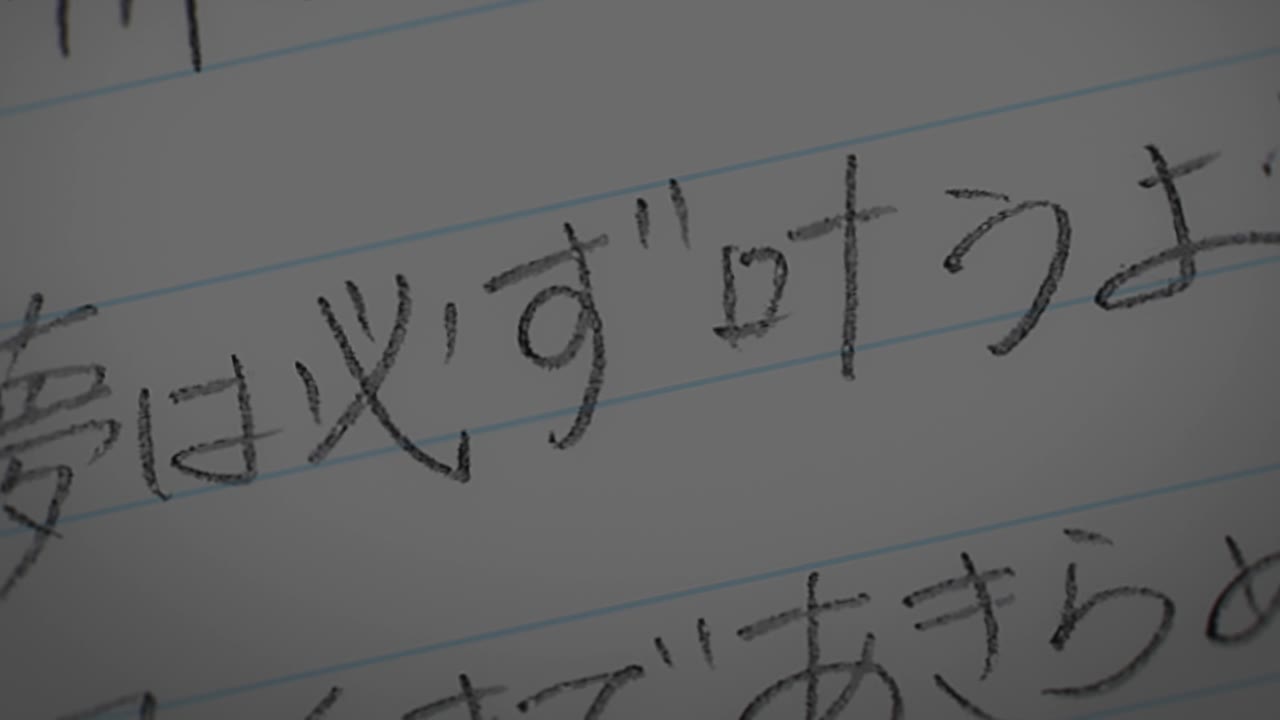 夢は必ず叶うよ
であきらめ